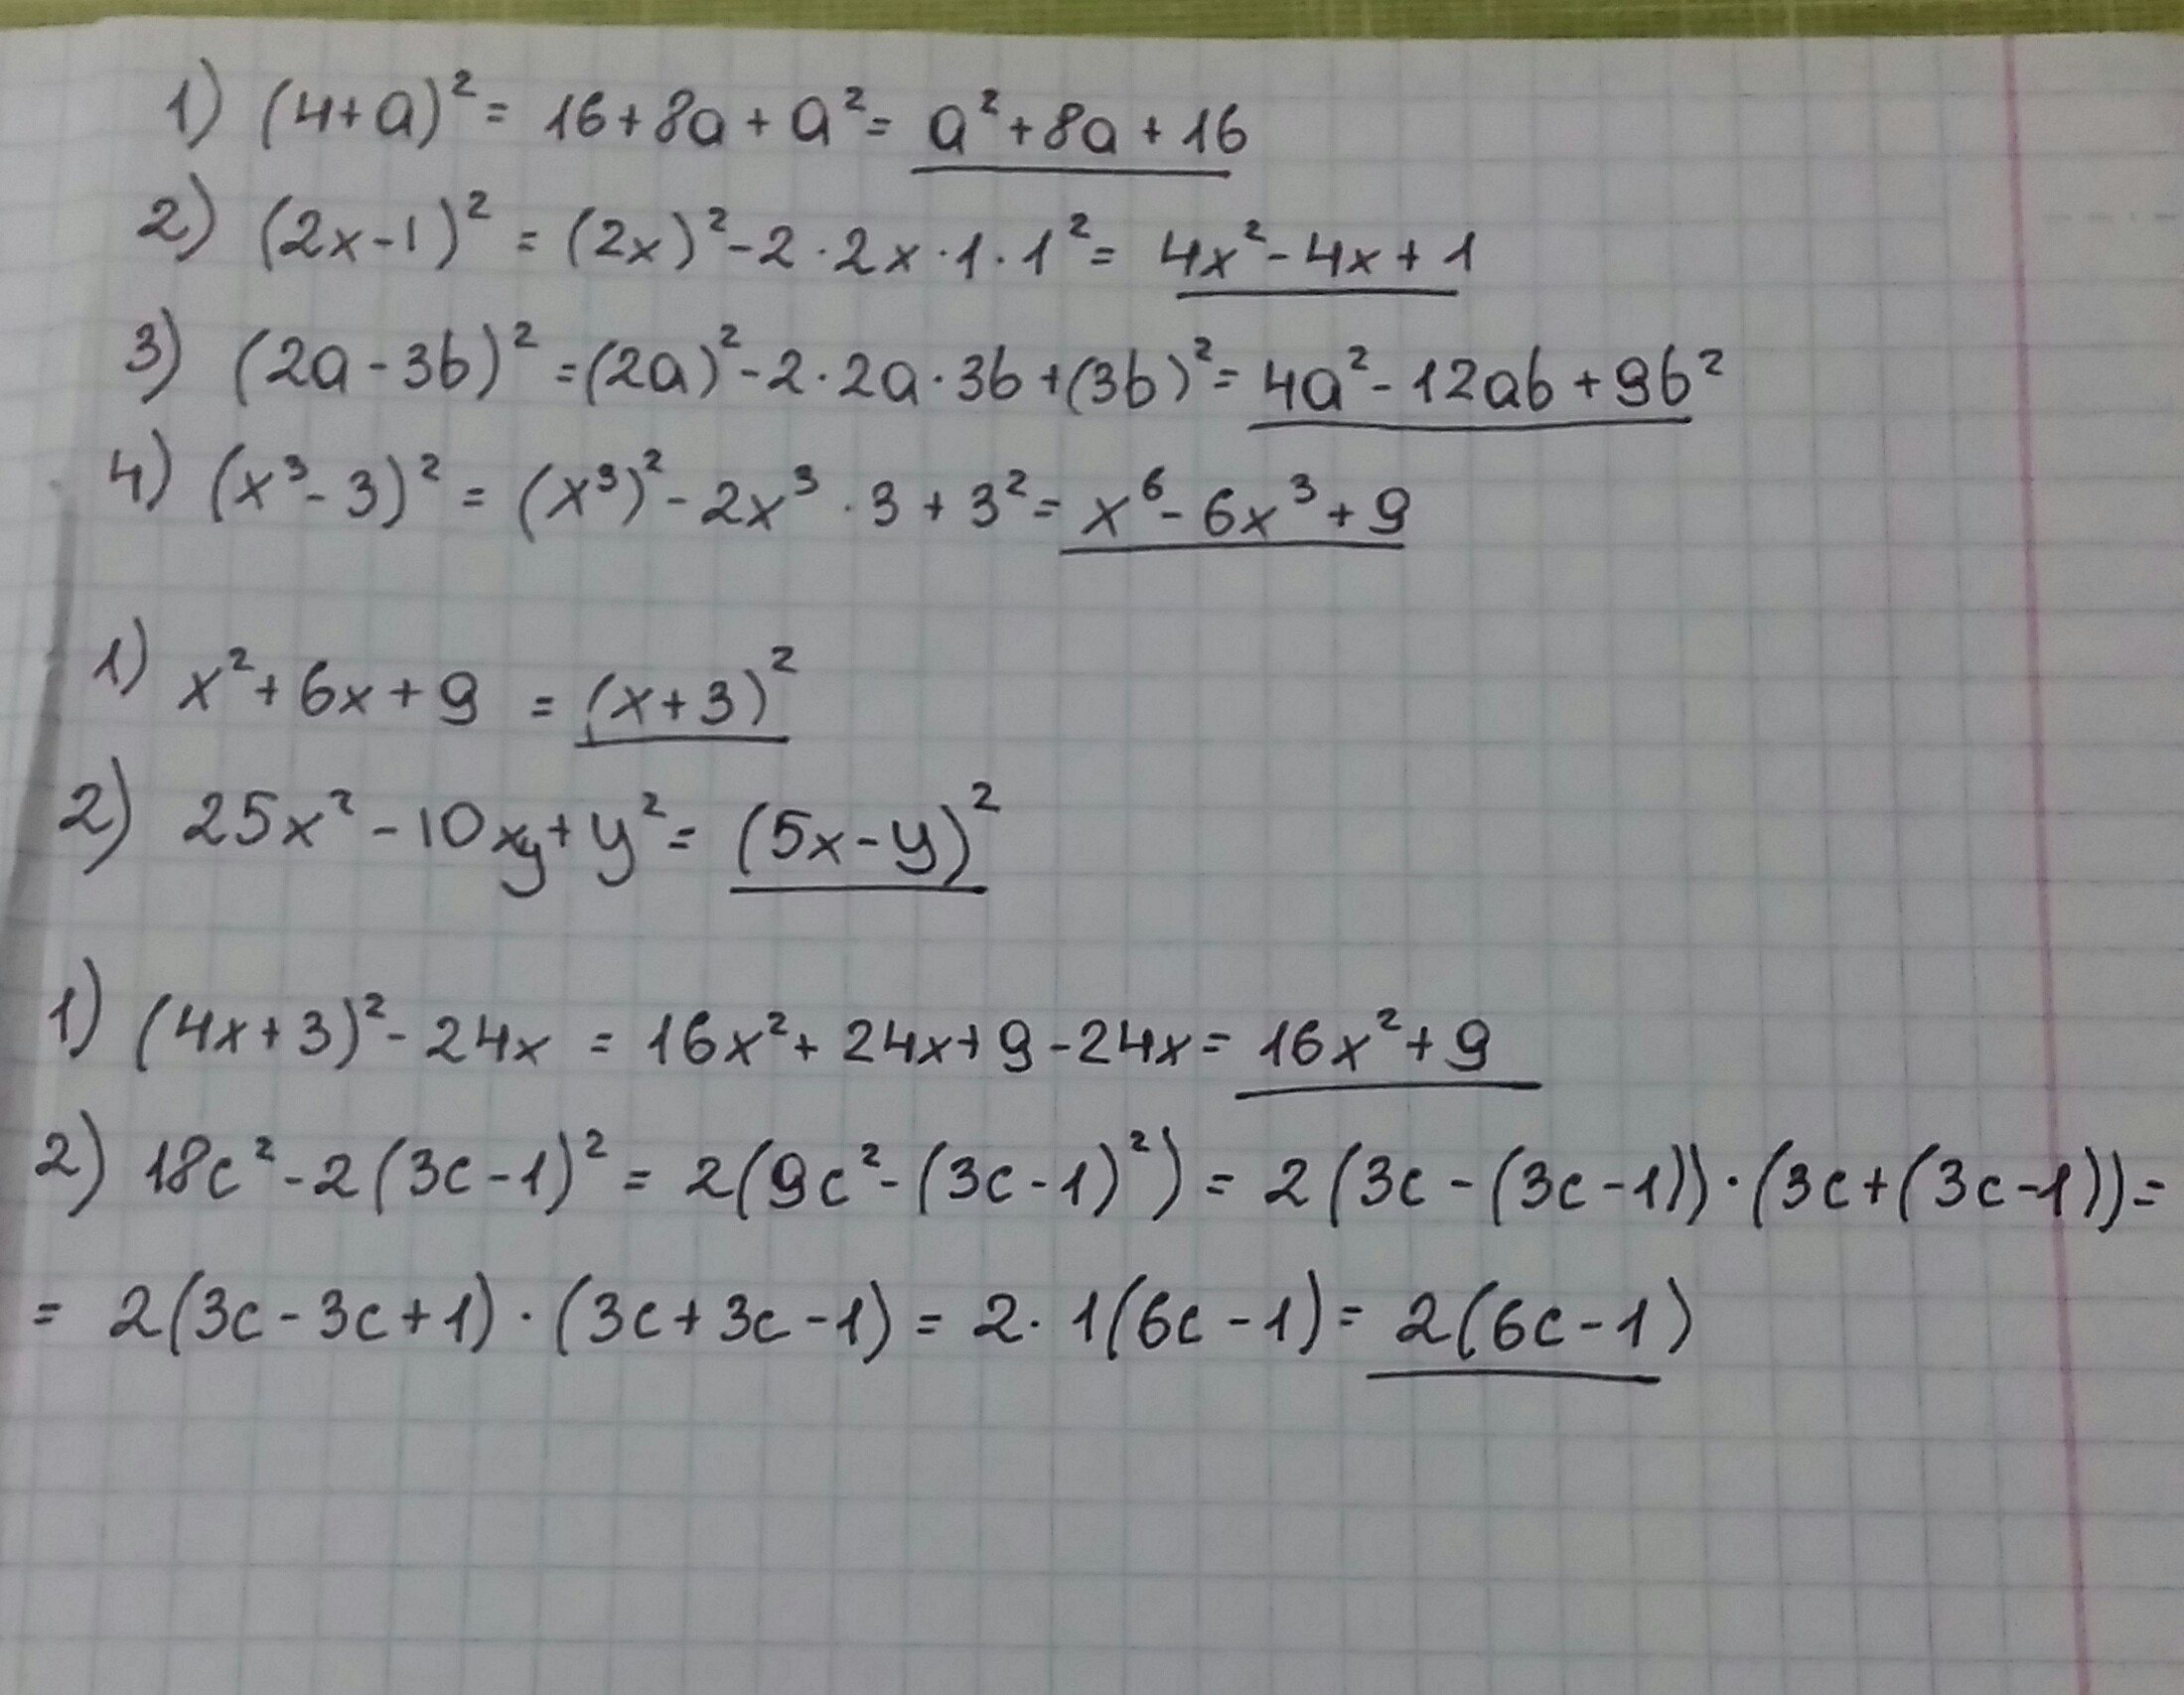 1) (4+a)² = 16+8a+a² = a²+8a+16
2) (2x-1)² = (2x)²-2·2x·1·1² = 4x²-4x+1
3) (2a-3b)² = (2a)²-2·2a·3b+(3b)² = 4a²-12ab+9b²
4) (x³-3)² = (x³)²-2x³·3+3² = x⁶-6x³+9
1) x²+6x+9 = (x+3)²
2) 25x²-10xy+y² = (5x-y)²
1) (4x+3)²-24x = 16x²+24x+9-24x = 16x²+9
2) 18c²-2(3c-1)² = 2(9c²-(3c-1)²) = 2(3c-(3c-1))·(3c+(3c-1)) =
= 2(3c-3c+1)·(3c+3c-1) = 2·1(6c-1) = 2(6c-1)